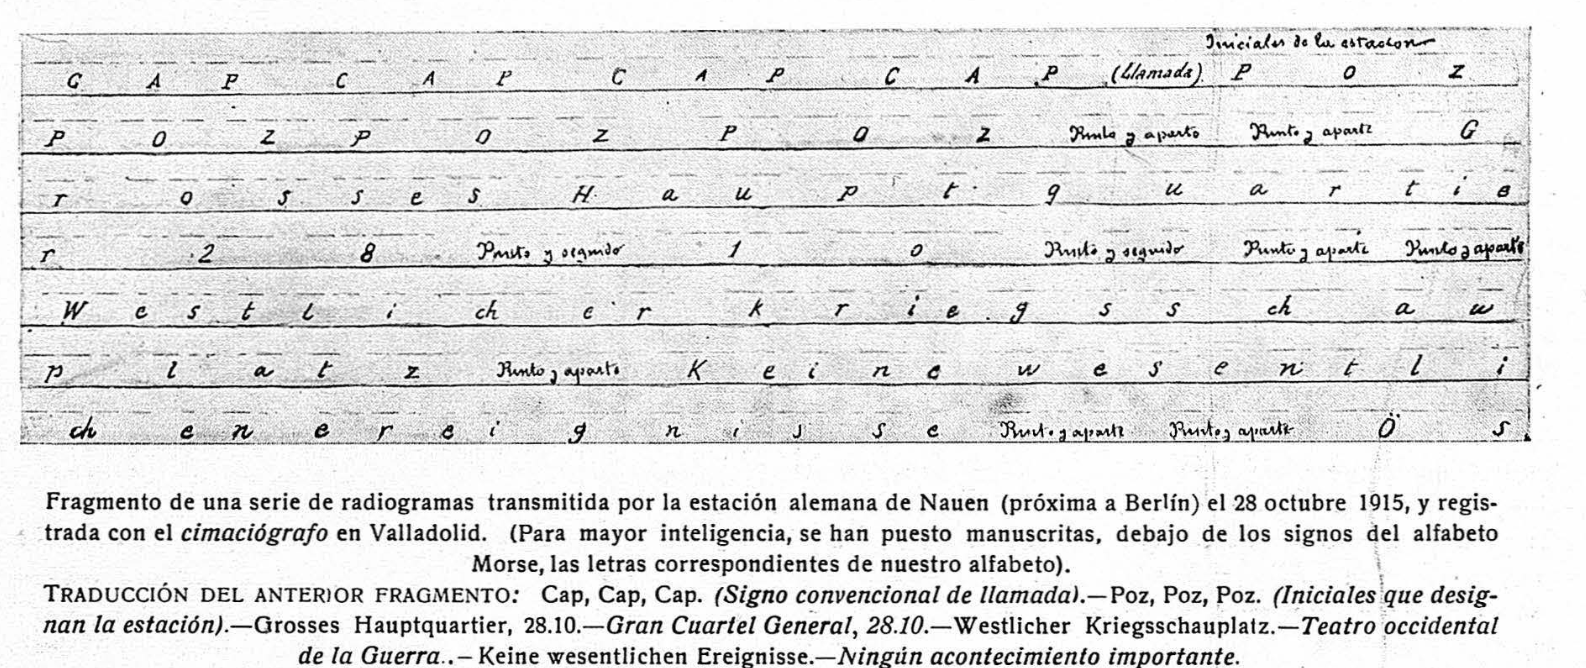 Iniciales de la estacion
C A P C A P C A P C A P (Llamada) P O Z
P O Z P O Z P O Z Punto y aparte Punto y aparte G
r o s s e s H a u p t q u a r t i e
r 2 8 Punto y seguido 1 0 Punto y seguido Punto y aparte Punto y aparte
W e s t l i ch e r k r i e g s s ch a u
p l a t z Punto y aparte K e i n e w e s e n t l i
ch e n e r e i g n i s s e Punto y aparte Punto y aparte Ö s
Fragmento de una serie de radiogramas transmitida por la estación alemana de Nauen (próxima a Berlín) el 28 octubre 1915, y regis-
trada con el cimaciógrafo en Valladolid. (Para mayor inteligencia, se han puesto manuscritas, debajo de los signos del alfabeto
Morse, las letras correspondientes de nuestro alfabeto).
TRADUCCIÓN DEL ANTERIOR FRAGMENTO: Cap, Cap, Cap. (Signo convencional de llamada).—Poz, Poz, Poz. (Iniciales que desig-
nan la estación).—Grosses Hauptquartier, 28.10.—Gran Cuartel General, 28.10.—Westlicher Kriegsschauplatz.—Teatro occidental
de la Guerra..—Keine wesentlichen Ereignisse.—Ningún acontecimiento importante.